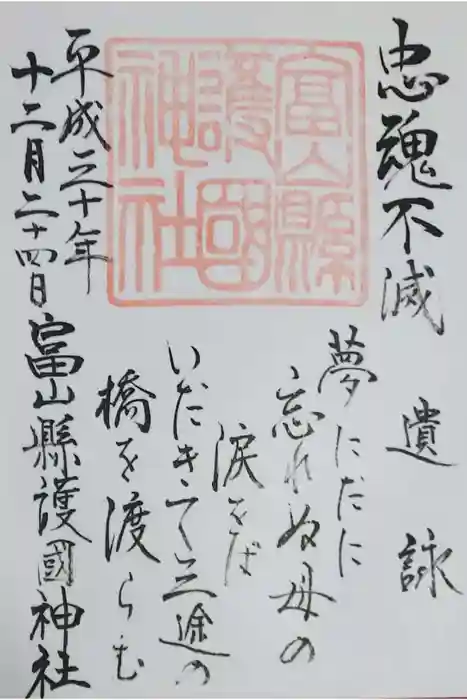 忠魂不滅
遺詠
夢にだに
忘れぬ母の
涙をば
いだきて三途の
橋を渡らむ
富山縣
護國
神社
平成三十年
十二月二十四日
富山縣護國神社